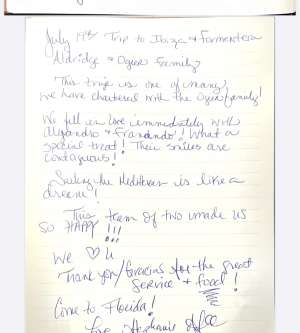 July 19th Trip to Ibiza & Formentera
Aldridge & Ogden Family
This trip is one of many
we have chartered with the Ogden family!
We fell in love immediately with
Alejandro & Franando! What a
special treat! Their smiles are
contagious!
Sailing the Mediterean is like a
dream!
This team of two made us
SO HAPPY!!!
We ♡ U
Thank you / for the great
Service & food!
Come to Florida!
Love